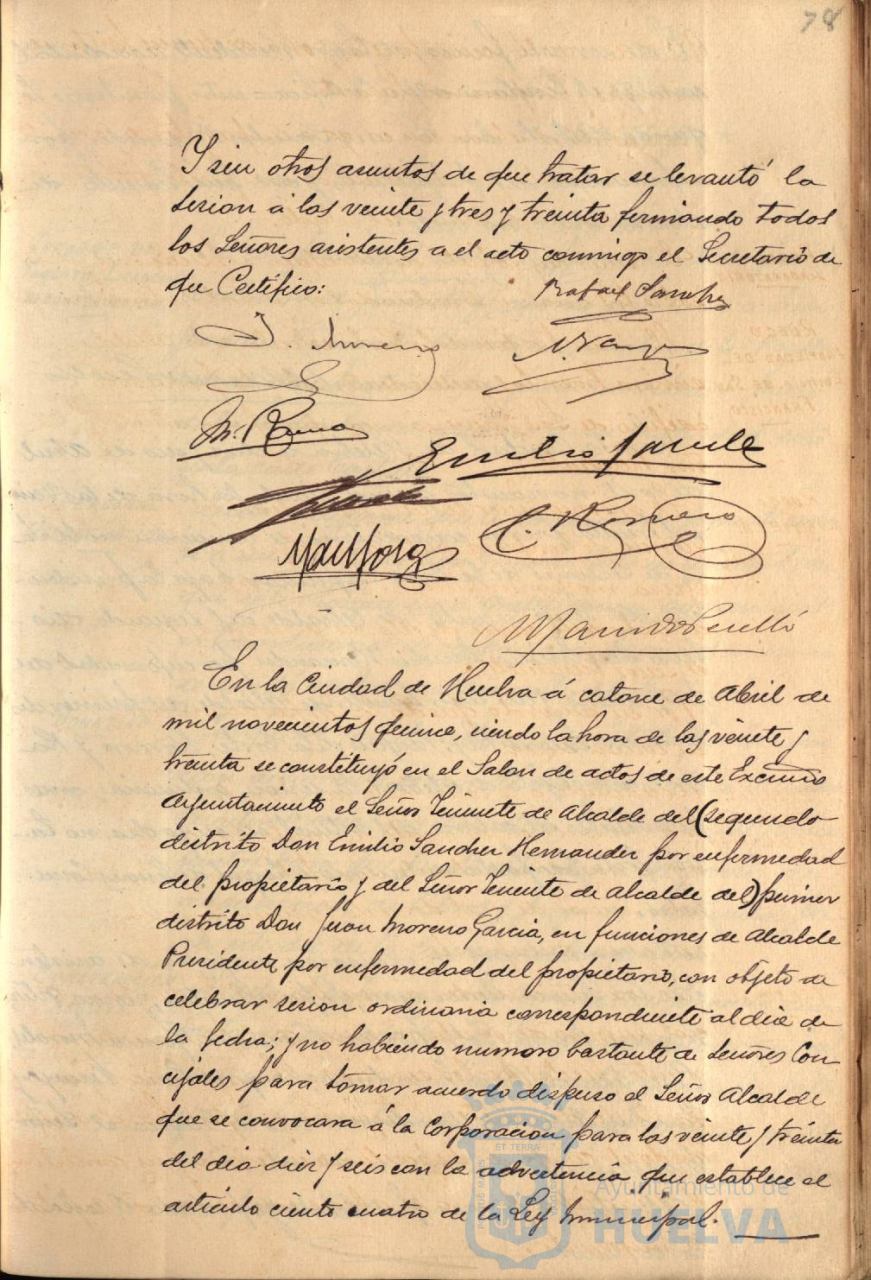 78
Y sin otros asuntos de que tratar se levantó la
sesion á las veinte y tres y treinta firmando todos
los Señores asistentes a el acto conmigo el Secretario de
que Certifico:
Rafael Sanchez
J. Moreno
M. Roma
Emilio Sanchez
C. Romero
En la Ciudad de Huelva á catorce de Abril de
mil novecientos quince, siendo la hora de las veinte y
treinta se constituyó en el Salon de actos de este Excmo
Ayuntamiento el Señor Teniente de Alcalde del (segundo
distrito Don Emilio Sanchez Hernandez por enfermedad
del propietario y del Señor Teniente de Alcalde del) primer
distrito Don Juan Moreno Garcia, en funciones de Alcalde
Presidente por enfermedad del propietario, con objeto de
celebrar sesion ordinaria correspondiente al dia de
la fecha; y no habiendo numero bastante de Señores Con
cejales para tomar acuerdo dispuso el Señor Alcalde
que se convocara á la Corporacion para las veinte y treinta
del dia diez y seis con la advertencia que establece el
articulo ciento cuatro de la Ley Municipal.
Ayuntamiento de
HUELVA